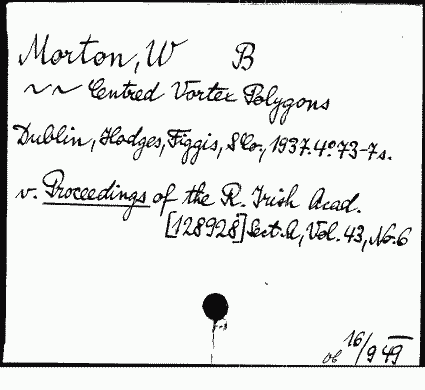 Morton, W B
~~ Centred Vortex Polygons
Dublin, Hodges, Figgis, & Co., 1937. 4° 73-7s.
v. Proceedings of the R. Irish Acad.
[128928] Sect. A, Vol. 43, No. 6
16/9 49